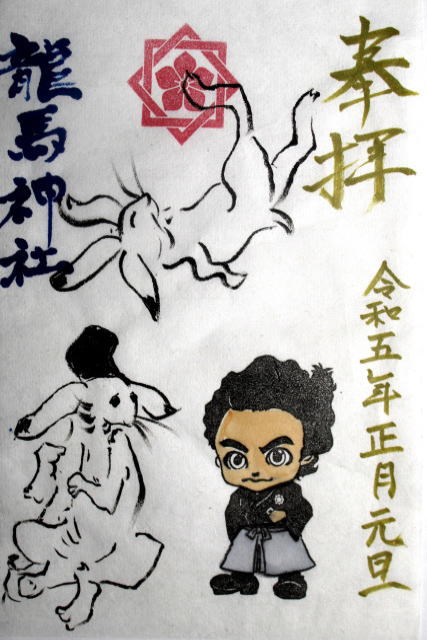 奉拝
令和五年正月元旦
龍馬神社